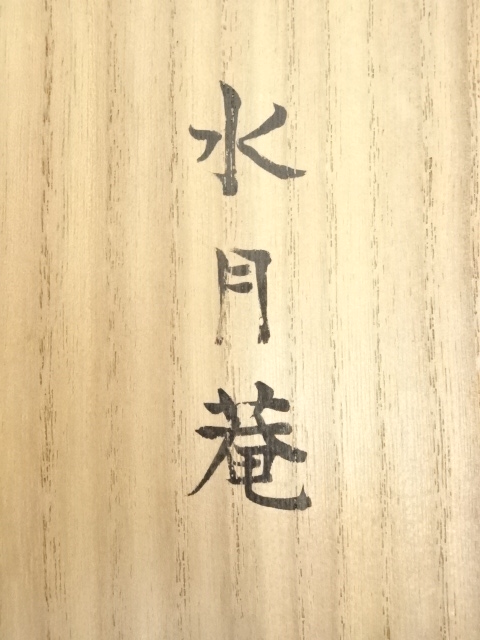 水月菴